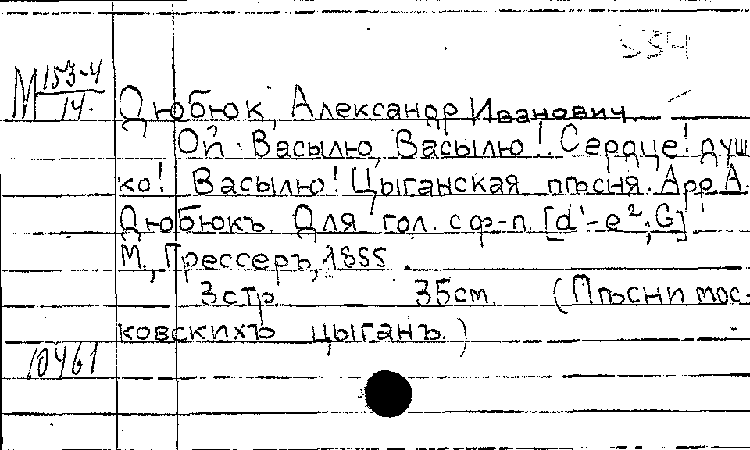 334
М 153-4/14.
Дюбюк, Александр Иванович
Ой Васылю, Васылю! Сердце! душ
ко! Васылю! Цыганская пѣсня. Арр. А.
Дюбюкъ. Для гол. с ф-п. [d¹-e²; G]
М., Грессеръ, 1855.
3 стр. 35 cm. (Пѣсни мос-
ковскихъ цыганъ.)
10461